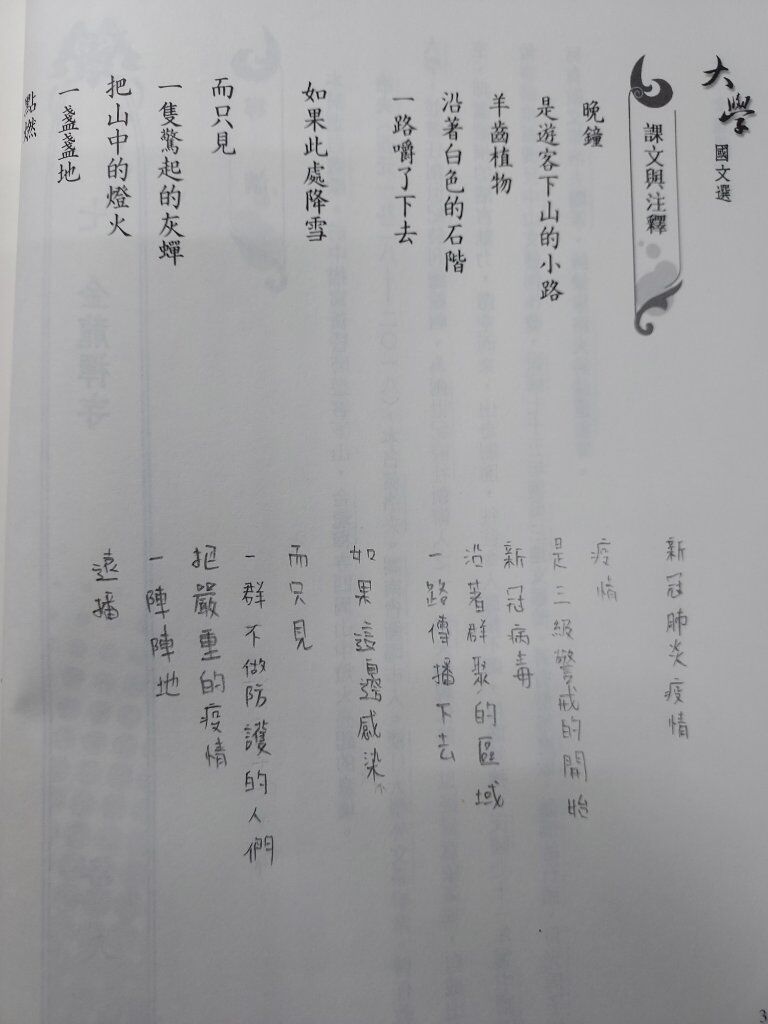 大學
國文選
課文與注釋
晚鐘
是遊客下山的小路
羊齒植物
沿著白色的石階
一路嚼了下去
如果此處降雪
而只見
一隻驚起的灰蟬
把山中的燈火
一盞盞地
點燃
新冠肺炎疫情
疫情
是三級警戒的開始
新冠病毒
沿著群聚的區域
一路傳播下去
如果這邊感染
而只見
一群不做防護的人們
把嚴重的疫情
一陣陣地
遠播
3